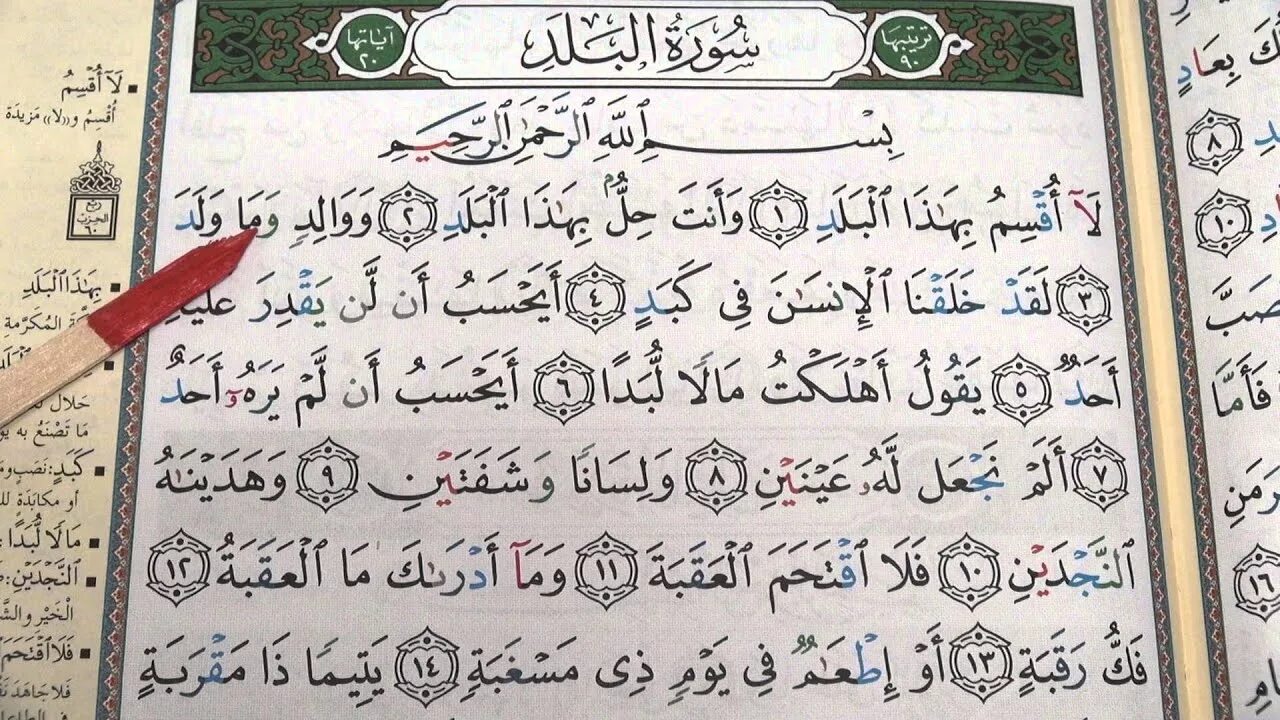 ترتيبها ٩٠ سُورَةُ الْبَلَدِ آياتها ٢٠
بِسْمِ ٱللَّهِ ٱلرَّحْمَٰنِ ٱلرَّحِيمِ
لَآ أُقْسِمُ بِهَٰذَا ٱلْبَلَدِ ١ وَأَنتَ حِلٌّۢ بِهَٰذَا ٱلْبَلَدِ ٢ وَوَالِدٍ وَمَا وَلَدَ
٣ لَقَدْ خَلَقْنَا ٱلْإِنسَٰنَ فِى كَبَدٍ ٤ أَيَحْسَبُ أَن لَّن يَقْدِرَ عَلَيْهِ
أَحَدٌ ٥ يَقُولُ أَهْلَكْتُ مَالًا لُّبَدًا ٦ أَيَحْسَبُ أَن لَّمْ يَرَهُۥٓ أَحَدٌ
٧ أَلَمْ نَجْعَل لَّهُۥ عَيْنَيْنِ ٨ وَلِسَانًا وَشَفَتَيْنِ ٩ وَهَدَيْنَٰهُ
ٱلنَّجْدَيْنِ ١٠ فَلَا ٱقْتَحَمَ ٱلْعَقَبَةَ ١١ وَمَآ أَدْرَىٰكَ مَا ٱلْعَقَبَةُ ١٢
فَكُّ رَقَبَةٍ ١٣ أَوْ إِطْعَٰمٌ فِى يَوْمٍ ذِى مَسْغَبَةٍ ١٤ يَتِيمًا ذَا مَقْرَبَةٍ
لَآ أُقْسِمُ
أُقْسِمُ و«لا» مَزِيدَة
ربع
الحزب
٦٠
بِهَٰذَا ٱلْبَلَدِ
المُكَرَّمةِ
حَلَال
مَا تَصْنَعُ به
كَبَدٍ: نَصَبٍ
أو مكابَدَةٍ
مَالًا لُّبَدًا:
ٱلنَّجْدَيْنِ:
الْخَيْرِ والشَّ
فَلَا ٱقْتَحَمَ
فلا جاهَدَ
بِعَادٍ
٨
١٠
فَأَمَّا
١٦